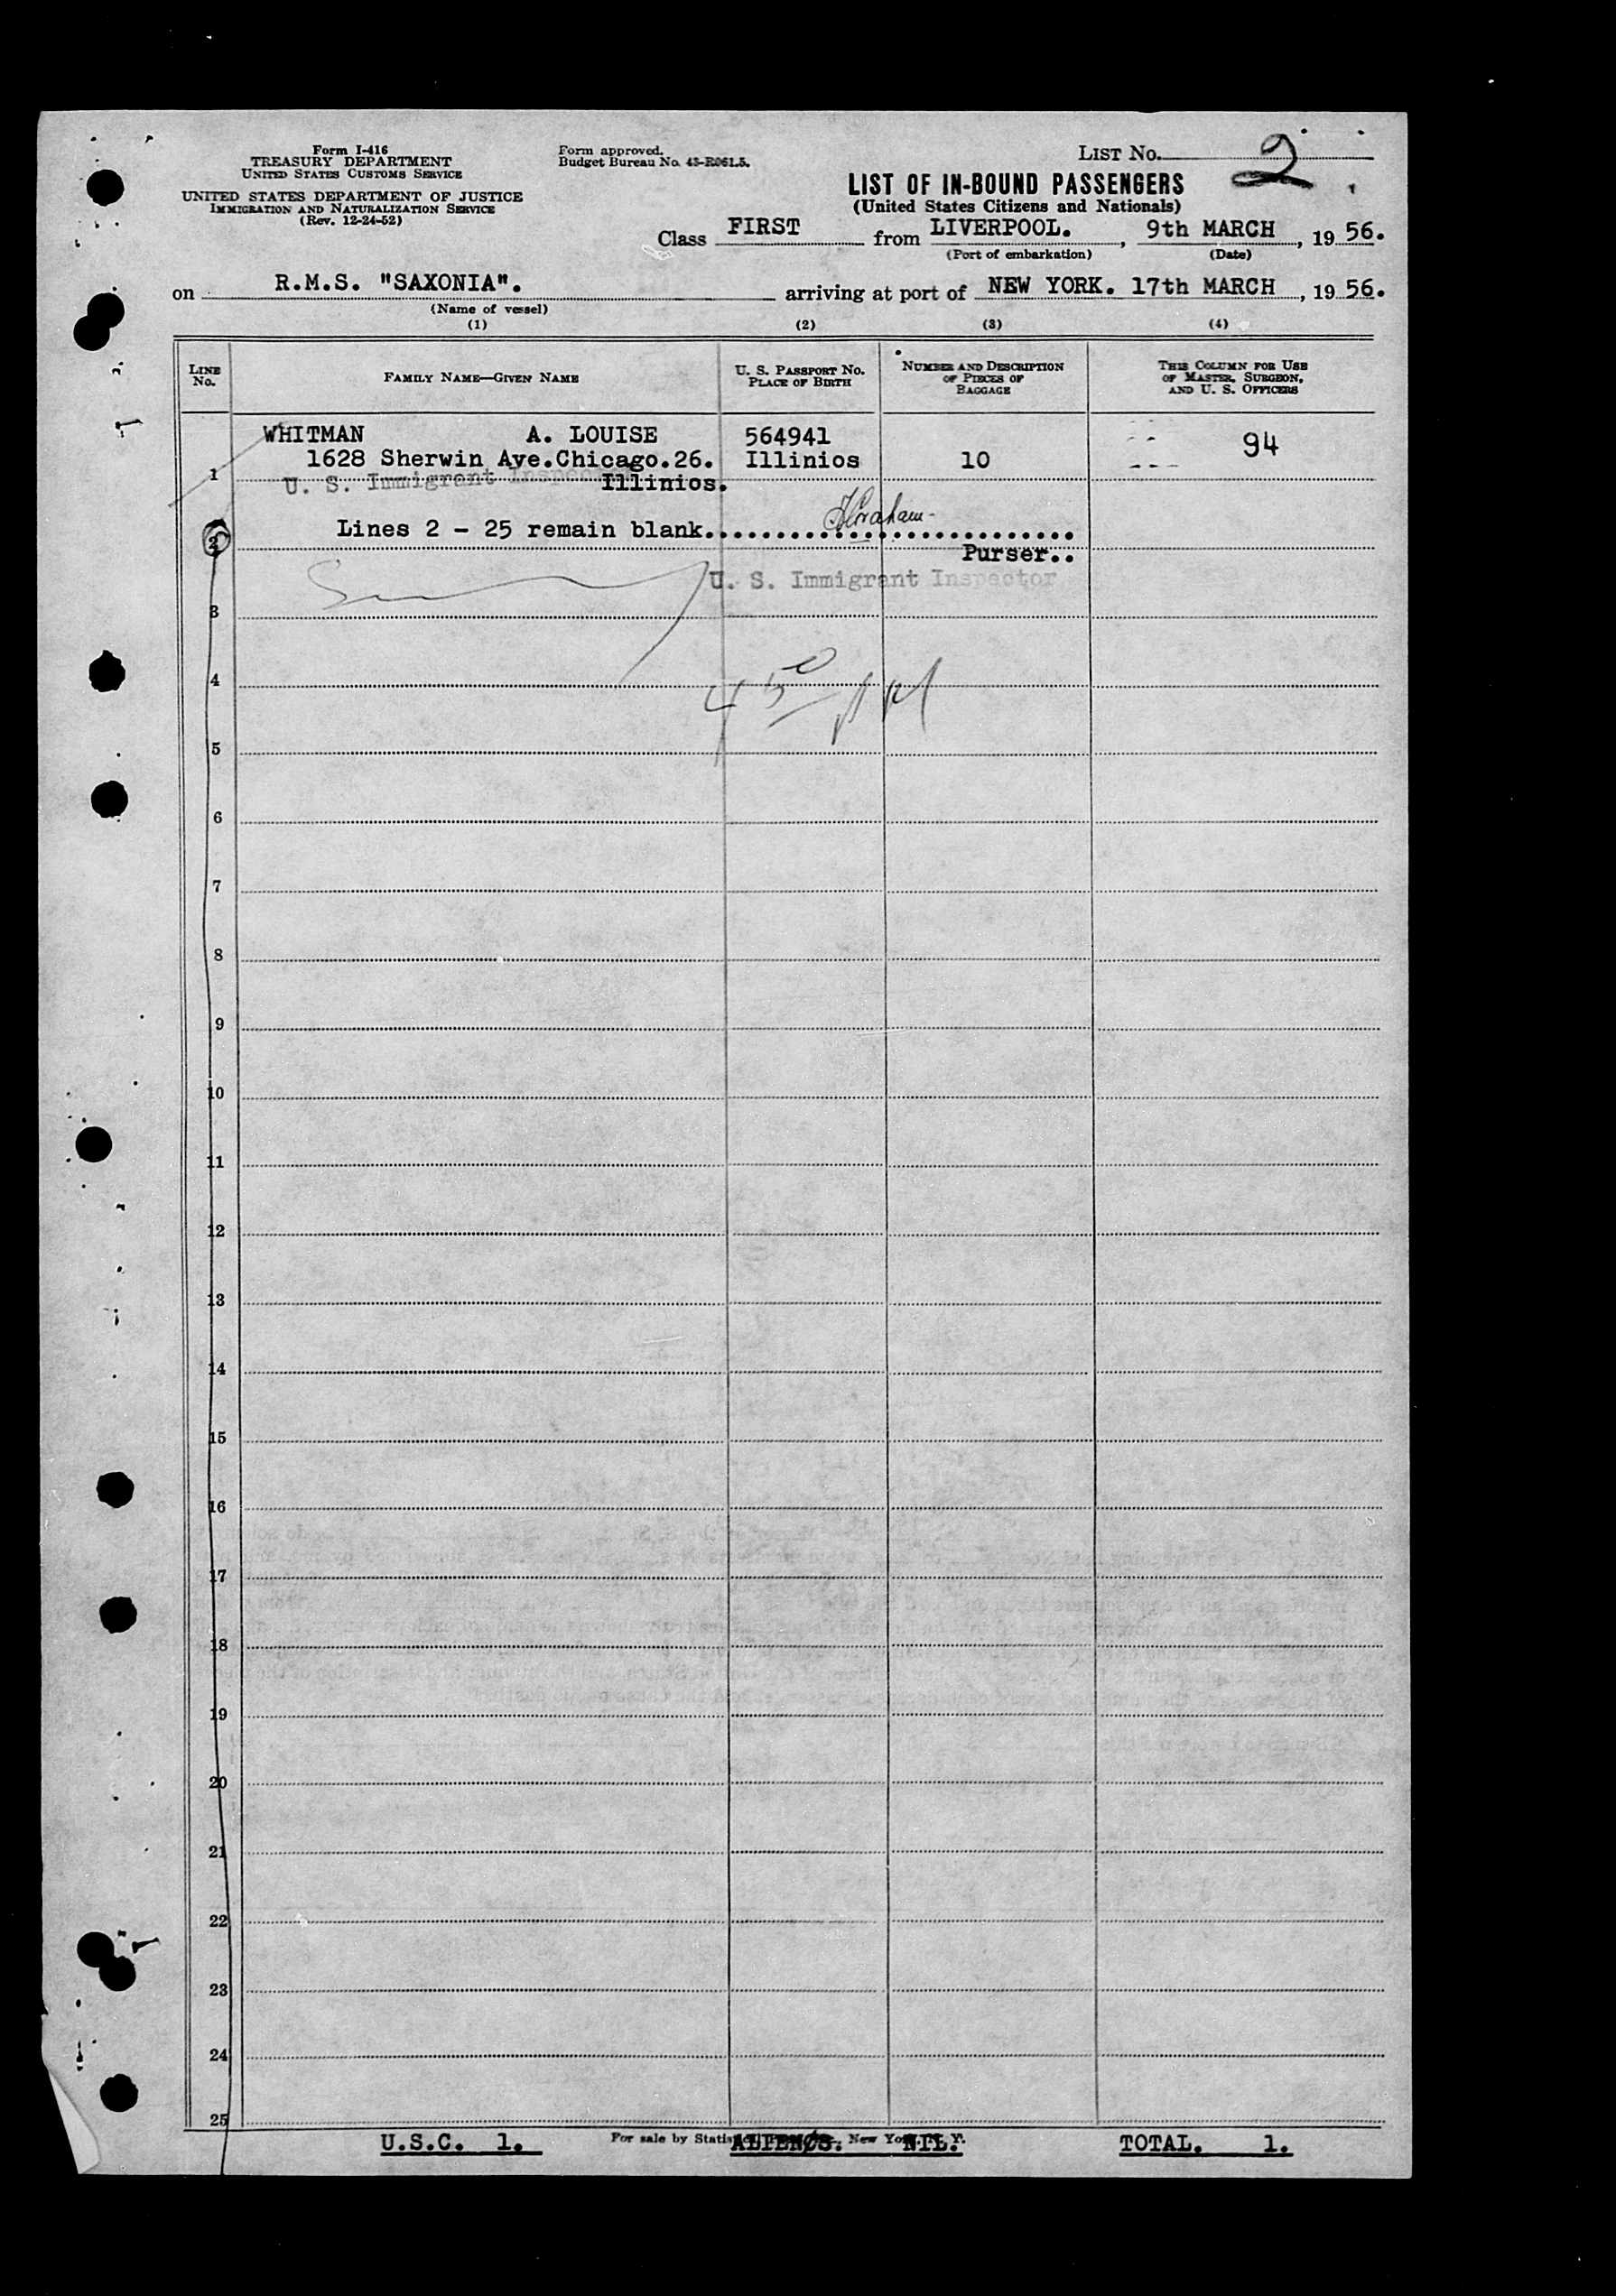 Form I-416
TREASURY DEPARTMENT
UNITED STATES CUSTOMS SERVICE
UNITED STATES DEPARTMENT OF JUSTICE
IMMIGRATION AND NATURALIZATION SERVICE
(Rev. 12-24-52)
Form approved.
Budget Bureau No. 43-R061.5.
LIST No. 2
LIST OF IN-BOUND PASSENGERS
(United States Citizens and Nationals)
Class FIRST from LIVERPOOL. , 9th MARCH , 19 56.
(Port of embarkation) (Date)
on R.M.S. "SAXONIA". arriving at port of NEW YORK. 17th MARCH , 19 56.
(Name of vessel)
(1) (2) (3) (4)
LINE No. FAMILY NAME—GIVEN NAME U. S. PASSPORT No. PLACE OF BIRTH NUMBER AND DESCRIPTION OF PIECES OF BAGGAGE THIS COLUMN FOR USE OF MASTER, SURGEON, AND U. S. OFFICERS
WHITMAN A. LOUISE 564941 94
1628 Sherwin Ave.Chicago.26. Illinios 10
1 U. S. Immigrant Inspector Illinios.
Lines 2 - 25 remain blank..........................
2 Purser..
U. S. Immigrant Inspector
3
4 4 50 PM
5
6
7
8
9
10
11
12
13
14
15
16
17
18
19
20
21
22
23
24
25
U.S.C. 1. For sale by ALIENS. New York, N. Y. NIL. TOTAL. 1.